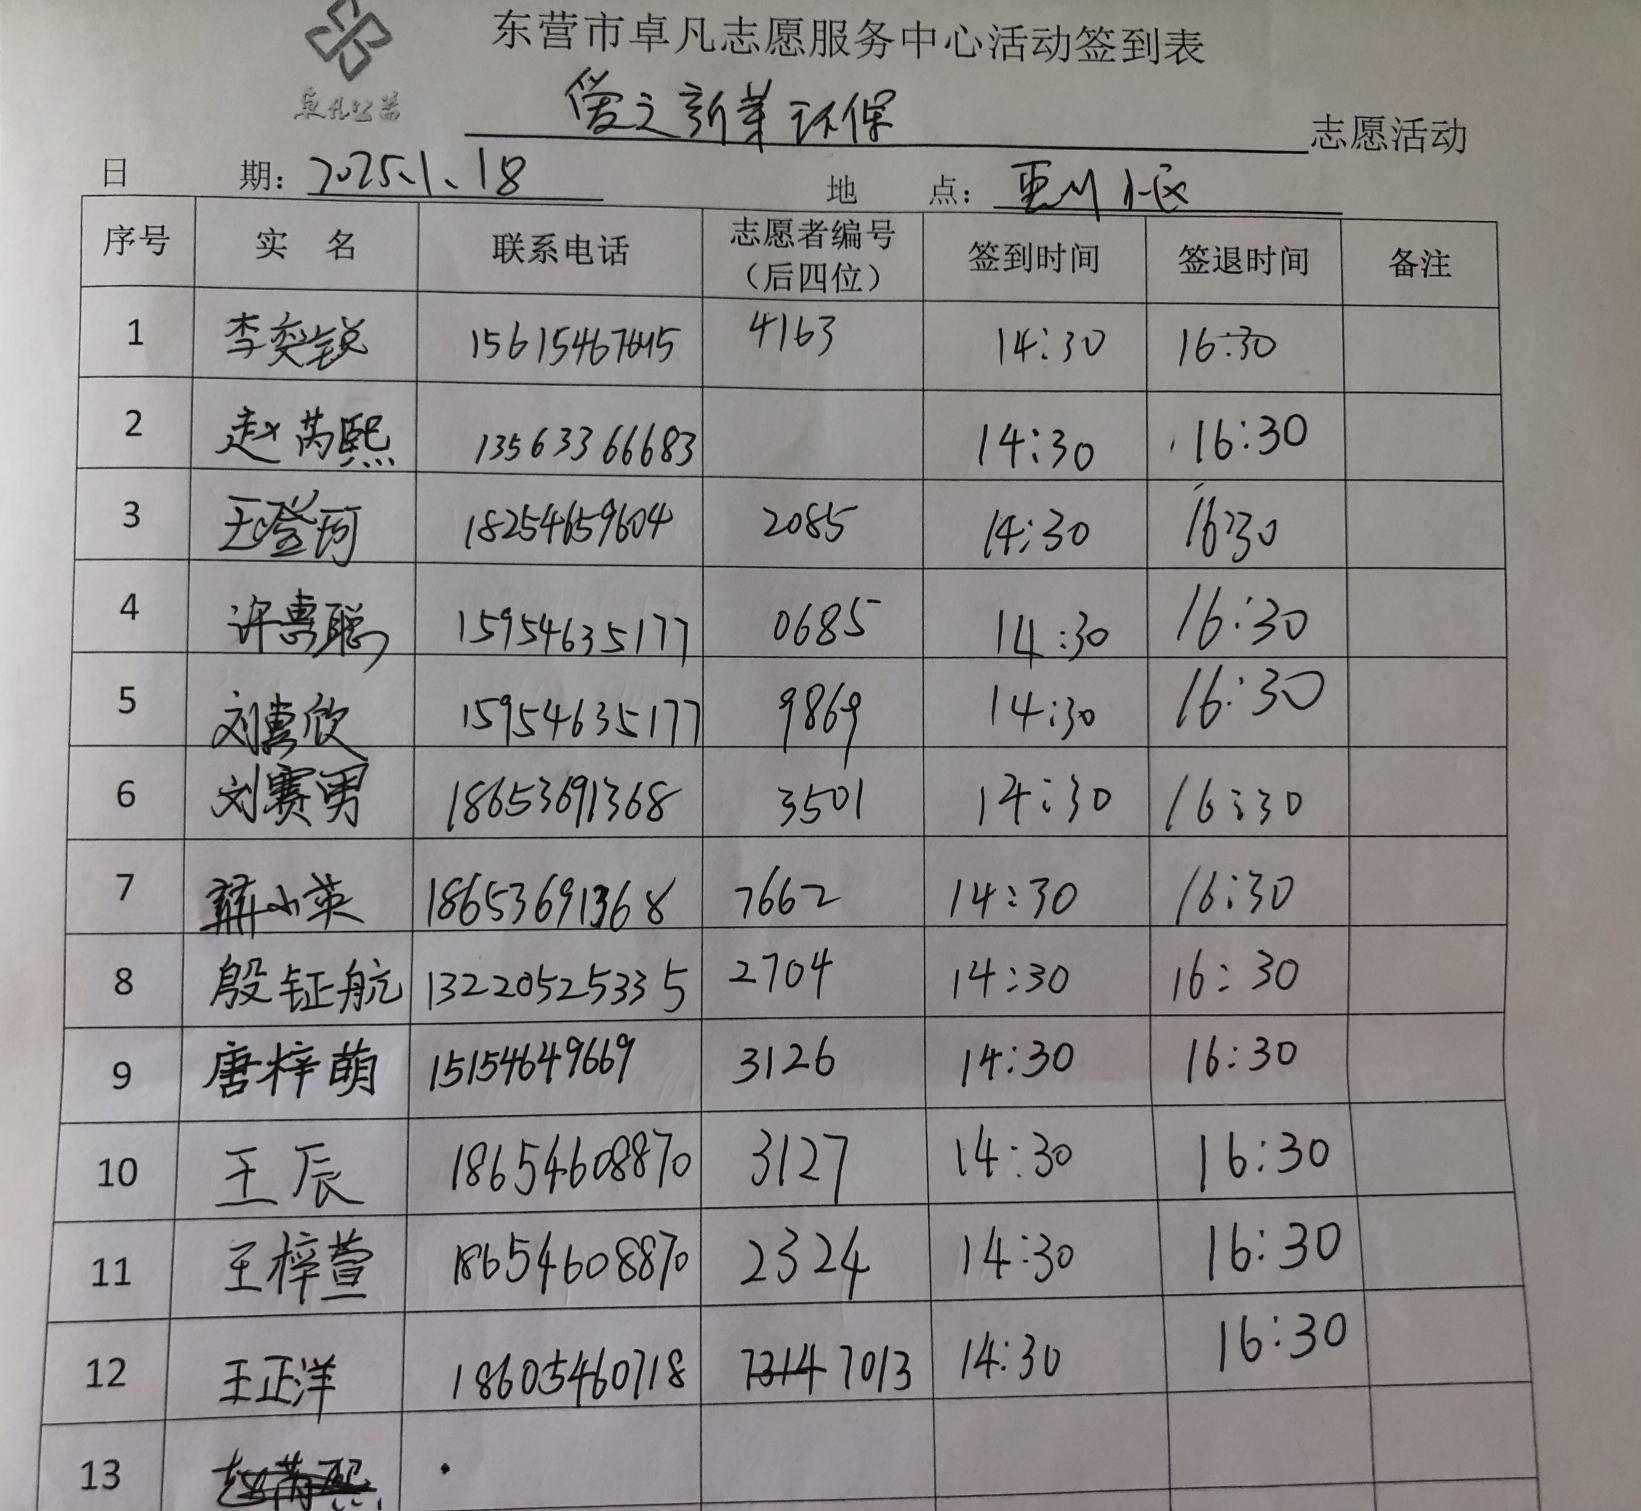 东营市卓凡志愿服务中心活动签到表
卓凡公益
爱之新芽环保 志愿活动
日 期: 2025.1.18 地 点: 小区
序号 实 名 联系电话 志愿者编号（后四位） 签到时间 签退时间 备注
1 李奕锐 15615467645 4163 14:30 16:30
2 赵芮熙 13563366683 14:30 16:30
3 王登珂 18254659604 2085 14:30 16:30
4 许惠聪 15954635177 0685 14:30 16:30
5 刘惠欣 15954635177 9869 14:30 16:30
6 刘赛男 18653691368 3501 14:30 16:30
7 小英 18653691368 7662 14:30 16:30
8 殷钲航 13220525335 2704 14:30 16:30
9 唐梓萌 15154649669 3126 14:30 16:30
10 王辰 18654608870 3127 14:30 16:30
11 王梓萱 18654608870 2324 14:30 16:30
12 王正洋 18605460718 7314 7013 14:30 16:30
13 赵芮熙